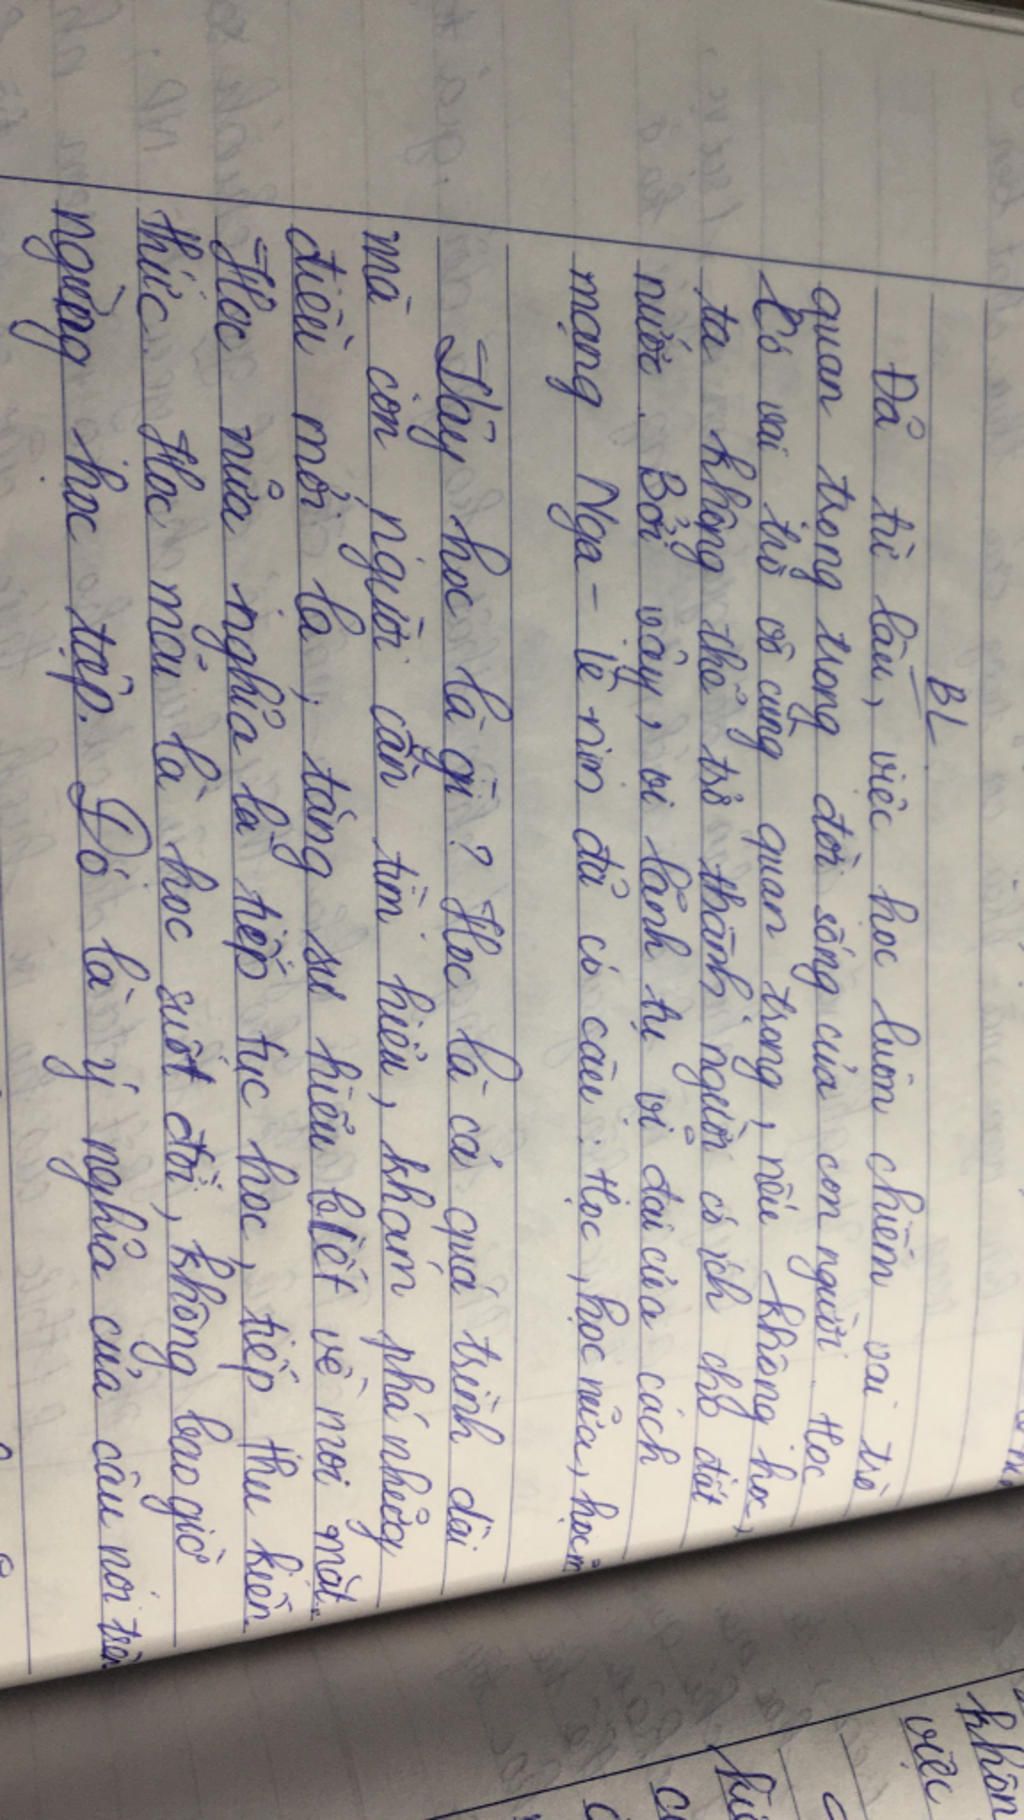 BL
Đã từ lâu, việc học luôn chiếm vai trò
quan trọng trong đời sống của con người. Học
có vai trò vô cùng quan trọng, nếu không học,
ta không thể trở thành người có ích cho đất
nước. Bởi vậy, vị lãnh tụ vĩ đại của cách
mạng Nga - Lê nin đã có câu: Học, học nữa, học m
Vậy học là gì? Học là cả quá trình dài
mà con người cần tìm hiểu, khám phá những
điều mới lạ, tăng sự hiểu biết về mọi mặt.
Học nữa nghĩa là tiếp tục học, tiếp thu kiến
thức. Học mãi là học suốt đời, không bao giờ
ngừng học tập. Đó là ý nghĩa của câu nói trên
khôn
việc